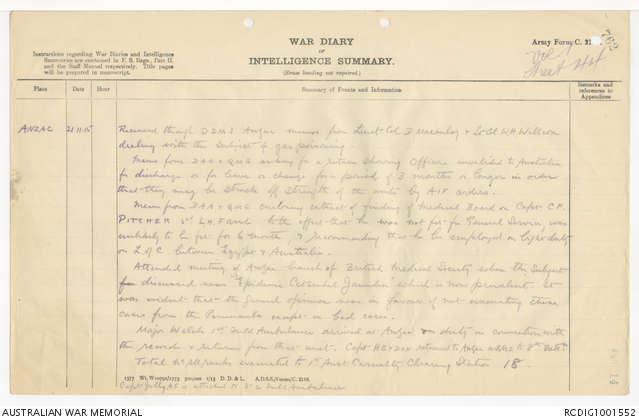 WAR DIARY
OR
INTELLIGENCE SUMMARY.
(Erase heading not required.)
Army Form C. 2118.
762
Instructions regarding War Diaries and Intelligence
Summaries are contained in F. S. Regs., Part II.
and the Staff Manual respectively. Title pages
will be prepared in manuscript.
Place Date Hour Summary of Events and Information Remarks and
references to
Appendices
ANZAC 21.11.15 Received through DDMS Anzac memos from Lieut Col &
dealing with the subject of gas poisoning.
Memo from DAA & QMG asking for a return showing Officers invalided to Australia
for discharge or for leave or change for a period of 3 months or longer in order
that they may be struck off strength of the units by AIF orders.
Memo from DAA & QMG enclosing extract of finding of Medical Board on Capt C.F.
PITCHER L.H.F. Amb to the effect that he was not fit for General Service, was
unlikely to be fit for 6 months, & recommending that he be employed on light duty
on L of C between Egypt & Australia.
Attended meeting of Anzac branch of British Medical Society when the subject
discussed was "Epidemic Catarrhal Jaundice" which is now prevalent. It
was evident that the general opinion was in favour of not evacuating these
cases from the Peninsula except in bad cases.
Major Welch 1st Field Ambulance arrived at Anzac on duty in connection with
the records & returns from that unit. Capt returned to Anzac
Total all ranks evacuated to 1st Aust Casualty Clearing Station 18.
1577 Wt. W10791/1773 500,000 1/15 D. D. & L. A.D.S.S./Forms/C. 2118.
Capt Jolly attached Field Ambulance
AUSTRALIAN WAR MEMORIAL
RCDIG1001552